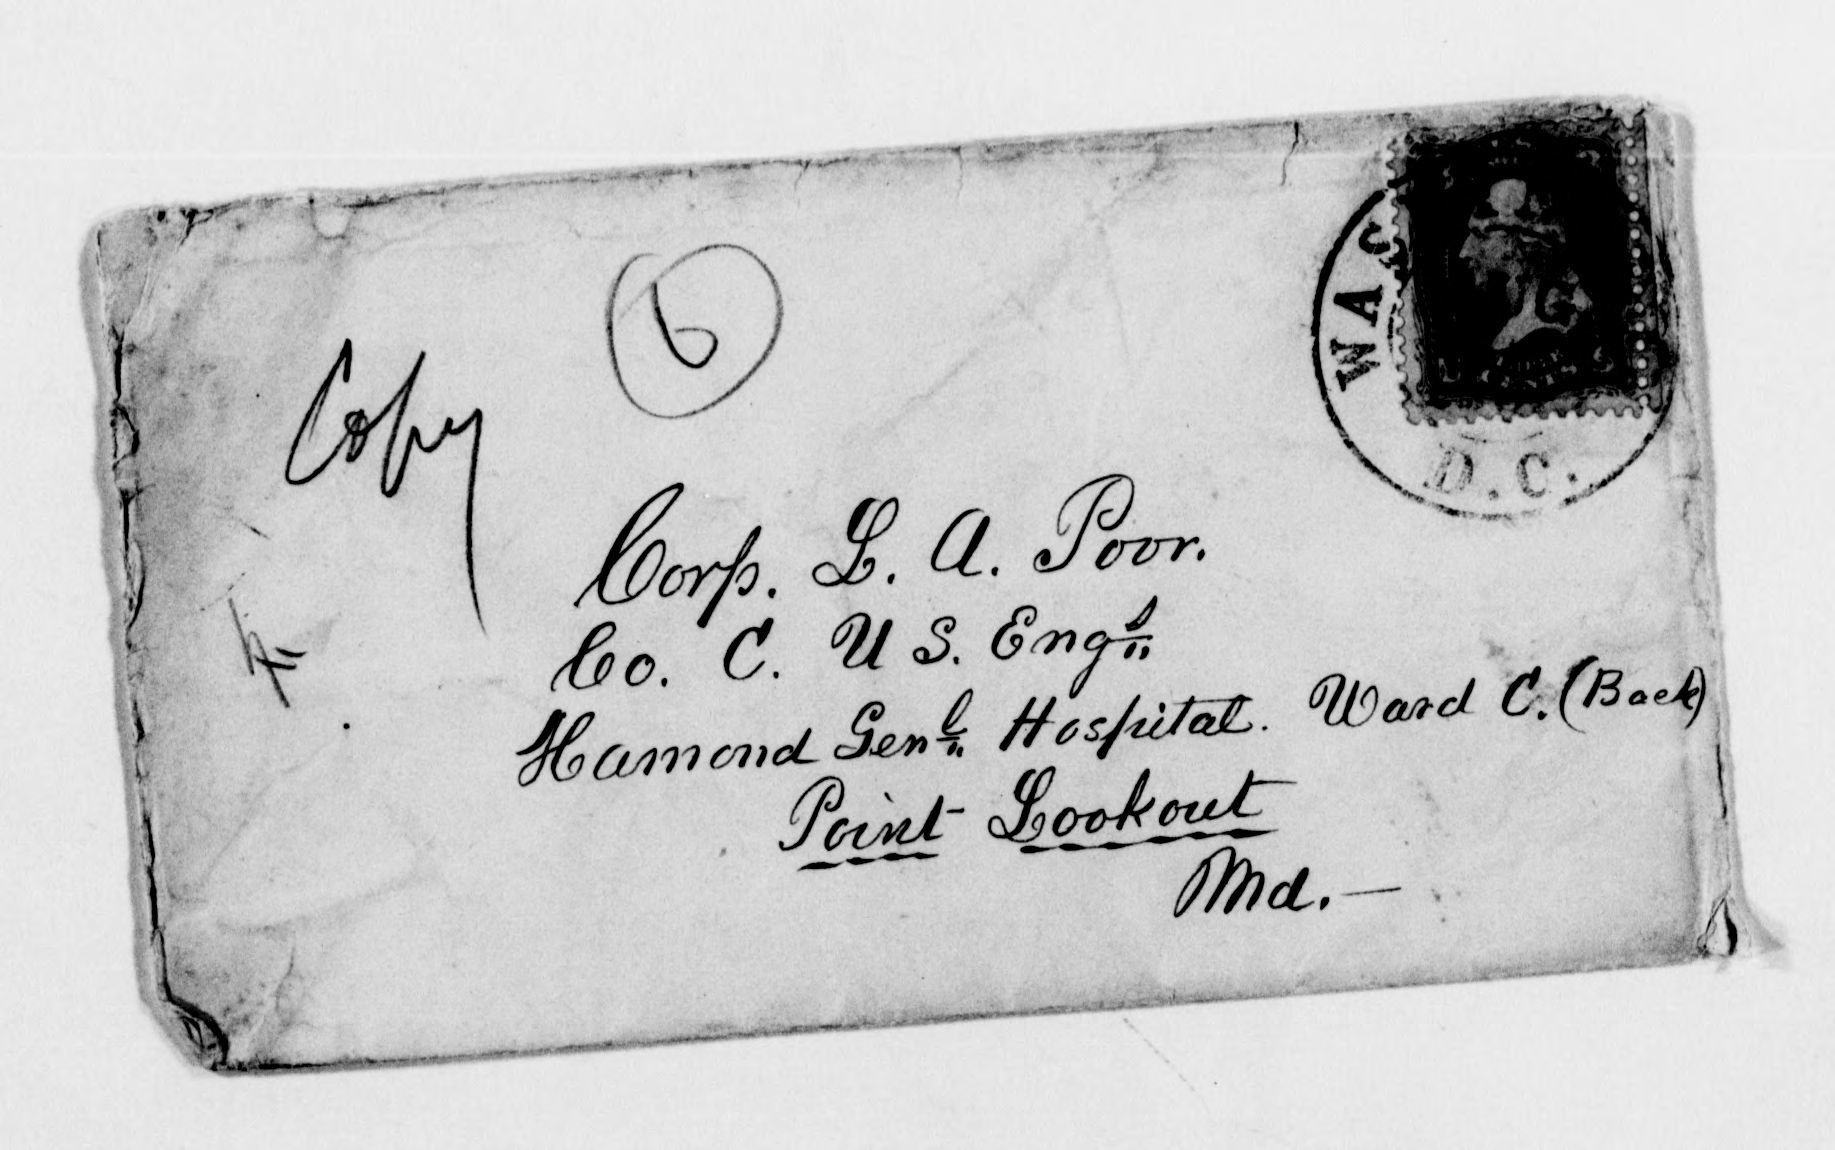 6
Copy
WAS
D.C.
Corp. L. A. Poor.
Co. C. U S. Eng.s
Hamond Genl. Hospital. Ward C. (Back)
Point Lookout
Md. —